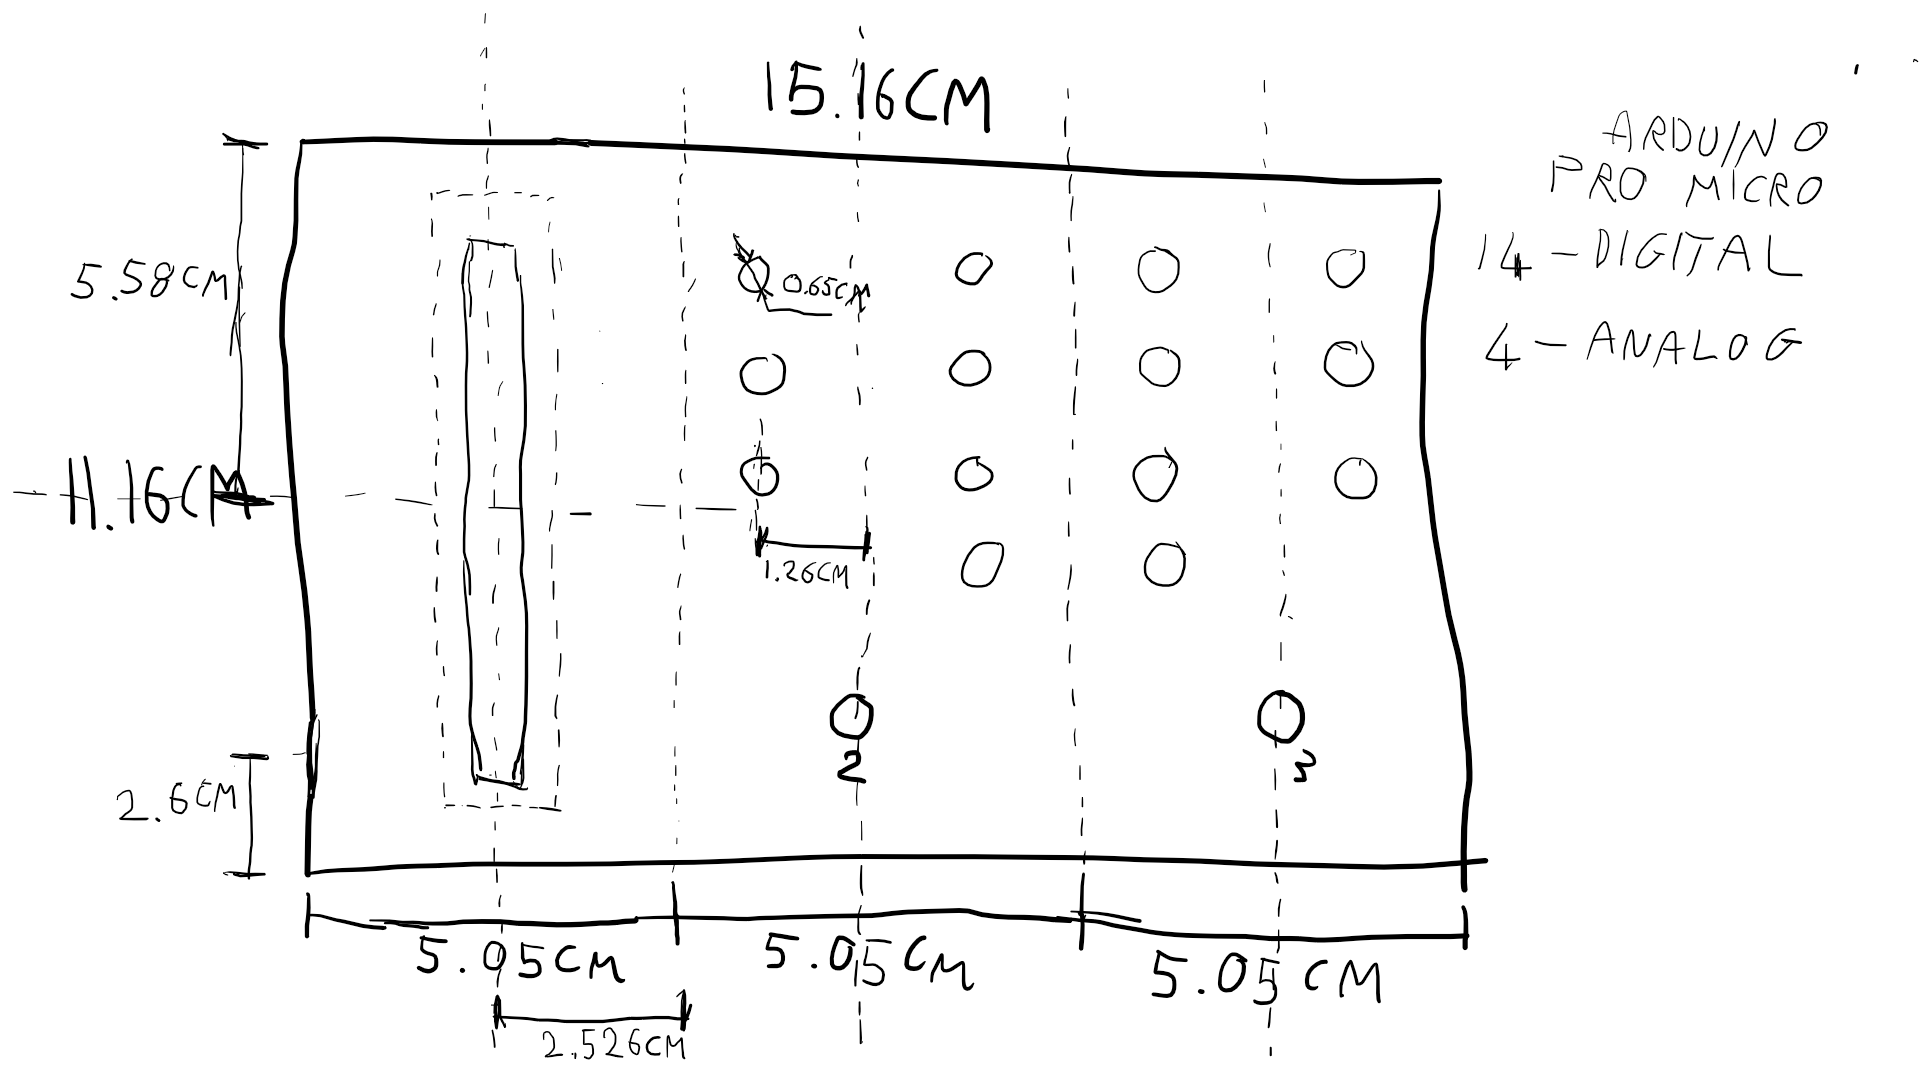 15.16CM
ARDUINO
PRO MICRO
14 - DIGITAL
4 - ANALOG
5.58CM
0.65CM
11.16CM
1.26CM
2
3
2.6CM
5.05CM
5.05CM
5.05CM
2.526CM